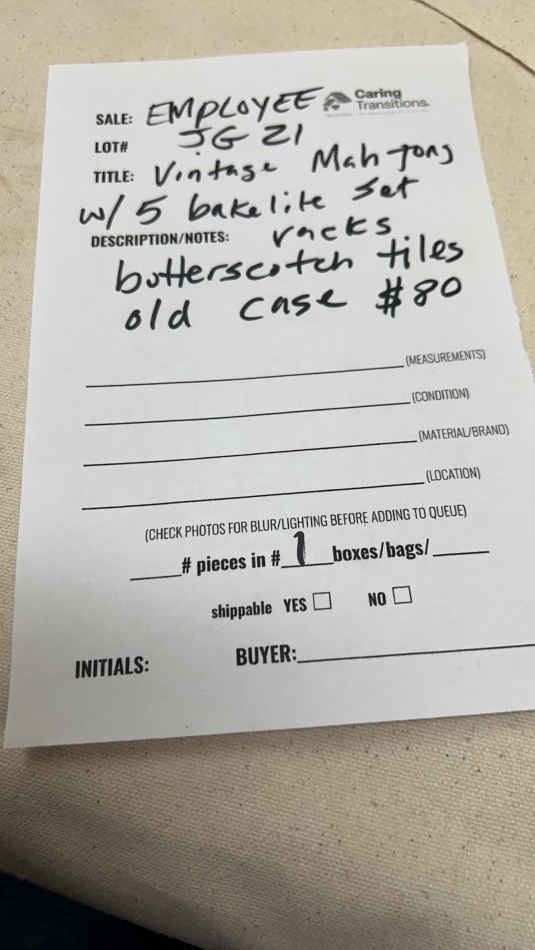 SALE: EMPLOYEE
Caring
Transitions
LOT# JG 21
TITLE: Vintage Mah-Jong
w/ 5 bakelite set
DESCRIPTION/NOTES: racks
butterscotch tiles
old case $80
(MEASUREMENTS)
(CONDITION)
(MATERIAL/BRAND)
(LOCATION)
(CHECK PHOTOS FOR BLUR/LIGHTING BEFORE ADDING TO QUEUE)
# pieces in # 1 boxes/bags/
shippable YES NO
INITIALS: BUYER: